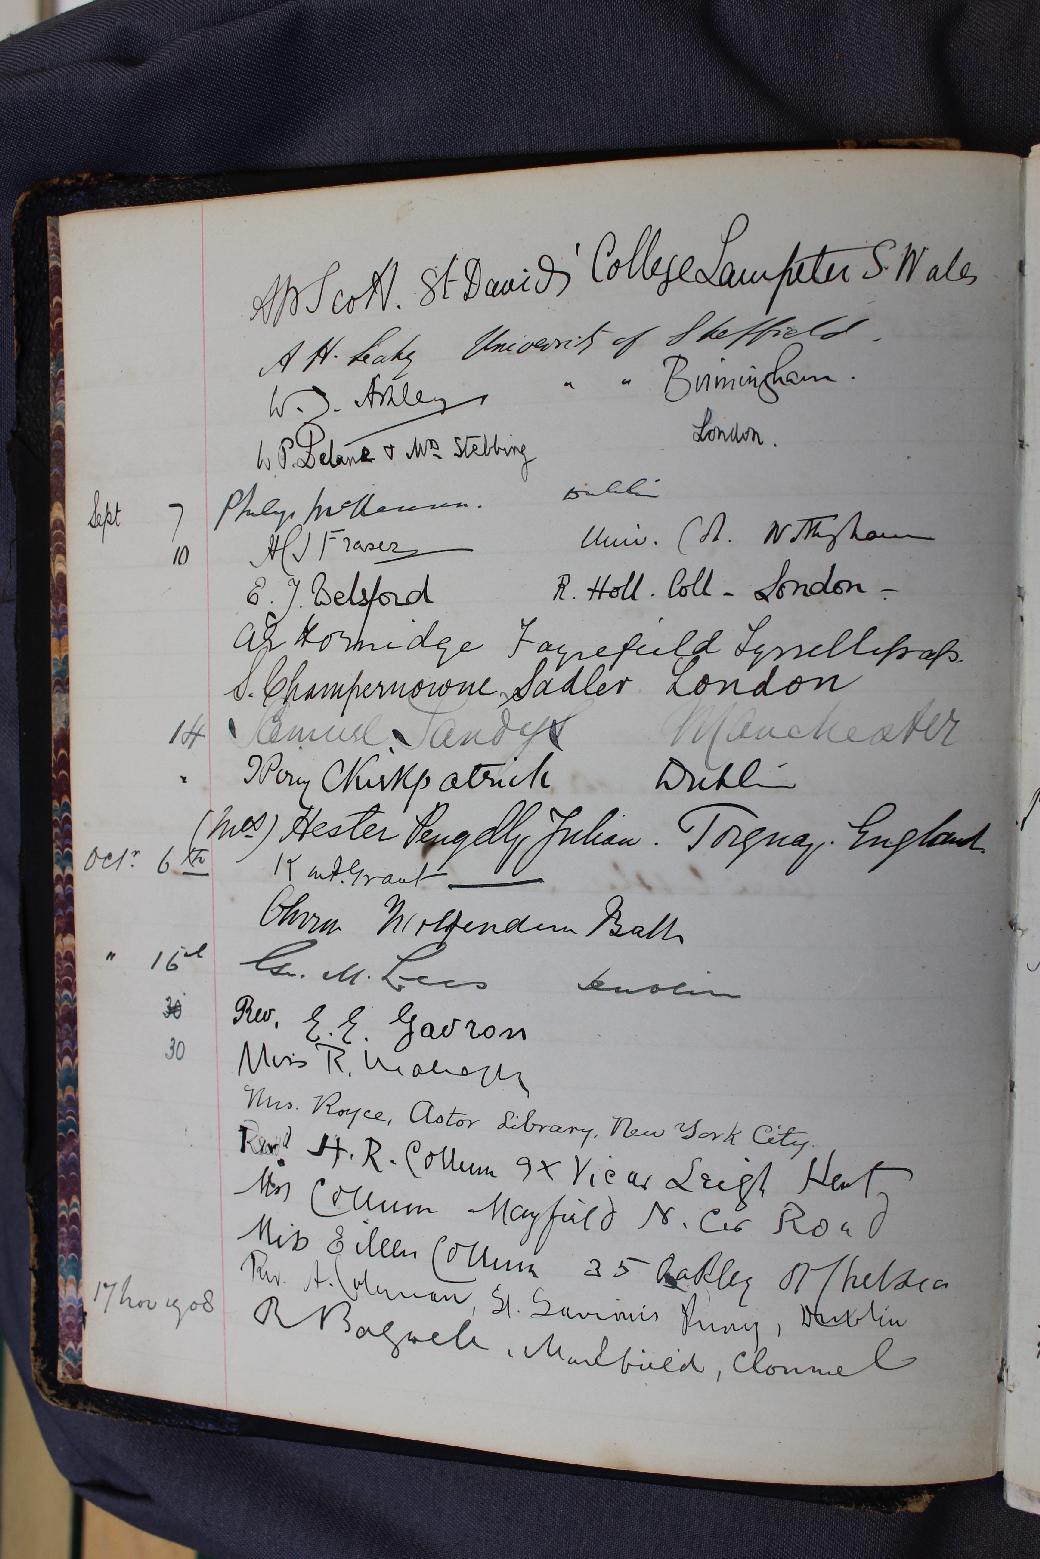 AP Scott. St Davids' College Lampeter S. Wales
A H. Leahy University of Sheffield.
W. J. Ashley " " Birmingham.
W. P. Delane & Mrs Stebbing London.
Sept 7 Dublin
10 Fraser Univ. Coll. Nottingham
E. J. Belsford R. Holl. Coll - London -
Hornidge Fayrefield Tyrrellspass.
S. Champernowne Sadler London
14 Samuel Sandys Manchester
" T Percy C Kirkpatrick Dublin
(Mrs) Hester Pengelly Julian. Torquay. England.
Octr. 6th Grant
Bath
" 16 G. M. Lees Dublin
30 Rev. E. E. Gavron
30 Miss R.
Mrs. Royce, Astor Library, New York City.
Revd H. R. Collum 9x Vicar Leigh Kent
Mrs Collum Mayfield N. Cir Road
Miss Eileen Collum 35 Oakley St Chelsea
Rev. A. Coleman, St. Saviour's Priory, Dublin
17 Nov 1908 R Bagwell, Marlfield, Clonmel